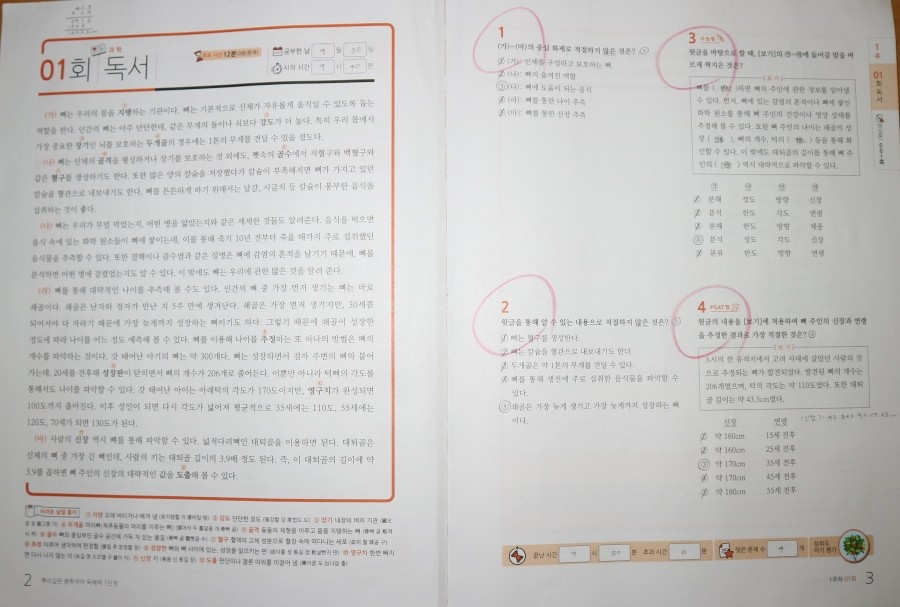 과학
01회 독서
목표 시간 12분
공부한 날 9 월 30 일
시작 시간 9 시 40 분
(가) 뼈는 우리의 몸을 지탱하는 기관이다. 뼈는 기본적으로 신체가 자유롭게 움직일 수 있도록 돕는
역할을 한다. 인간의 뼈는 아주 단단한데, 같은 무게의 돌이나 쇠보다 강도가 더 높다. 특히 우리 몸에서
가장 중요한 장기인 뇌를 보호하는 두개골의 경우에는 1톤의 무게를 견딜 수 있을 정도다.
(나) 뼈는 인체의 골격을 형성하거나 장기를 보호하는 것 외에도, 뼛속의 골수에서 적혈구와 백혈구와
같은 혈구를 생성하기도 한다. 또한 많은 양의 칼슘을 저장했다가 칼슘이 부족해지면 뼈가 가지고 있던
칼슘을 혈관으로 내보내기도 한다. 뼈를 튼튼하게 하기 위해서는 달걀, 시금치 등 칼슘이 풍부한 음식을
섭취하는 것이 좋다.
(다) 뼈는 우리가 무얼 먹었는지, 어떤 병을 앓았는지와 같은 세세한 것들도 알려준다. 음식을 먹으면
음식 속에 있는 화학 원소들이 뼈에 쌓이는데, 이를 통해 죽기 10년 전부터 죽을 때까지 주로 섭취했던
음식물을 추측할 수 있다. 또한 결핵이나 골수염과 같은 질병은 뼈에 감염의 흔적을 남기기 때문에, 뼈를
분석하면 어떤 병에 걸렸었는지도 알 수 있다. 이 밖에도 뼈는 우리에 관한 많은 것을 알려 준다.
(라) 뼈를 통해 대략적인 나이를 추측해 볼 수도 있다. 인간의 뼈 중 가장 먼저 생기는 뼈는 바로
쇄골이다. 쇄골은 난자와 정자가 만난 지 5주 만에 생겨난다. 쇄골은 가장 먼저 생기지만, 30세쯤
되어서야 다 자라기 때문에 가장 늦게까지 성장하는 뼈이기도 하다. 그렇기 때문에 쇄골이 성장한
정도에 따라 나이를 어느 정도 예측해 볼 수 있다. 뼈를 이용해 나이를 추정하는 또 하나의 방법은 뼈의
개수를 파악하는 것이다. 갓 태어난 아기의 뼈는 약 300개다. 뼈는 성장하면서 점차 주변의 뼈와 붙어
가는데, 20세를 전후해 성장판이 닫히면서 뼈의 개수가 206개로 줄어든다. 이뿐만 아니라 턱뼈의 각도를
통해서도 나이를 파악할 수 있다. 갓 태어난 아이는 아래턱의 각도가 170도이지만, 영구치가 완성되면
100도까지 좁아진다. 이후 성인이 되면 다시 각도가 넓어져 평균적으로 35세에는 110도, 55세에는
120도, 70세가 되면 130도가 된다.
(마) 사람의 신장 역시 뼈를 통해 파악할 수 있다. 넓적다리뼈인 대퇴골을 이용하면 된다. 대퇴골은
신체의 뼈 중 가장 긴 뼈인데, 사람의 키는 대퇴골 길이의 3.9배 정도 된다. 즉, 이 대퇴골의 길이에 약
3.9를 곱하면 뼈 주인의 신장의 대략적인 값을 도출해 볼 수 있다.
어려운 낱말 풀이
2 뿌리깊은 중학국어 독해력 1단계
1
(가)~(마)의 중심 화제로 적절하지 않은 것은? ③
① (가): 인체를 구성하고 보호하는 뼈
② (나): 뼈의 숨겨진 역할
③ (다): 뼈에 도움이 되는 음식
④ (라): 뼈를 통한 나이 추측
⑤ (마): 뼈를 통한 신장 추측
2
윗글을 통해 알 수 있는 내용으로 적절하지 않은 것은? ⑤
① 뼈는 혈구를 생성한다.
② 뼈는 칼슘을 혈관으로 내보내기도 한다.
③ 두개골은 약 1톤의 무게를 견딜 수 있다.
④ 뼈를 통해 생전에 주로 섭취한 음식물을 파악할 수
있다.
⑤ 쇄골은 가장 늦게 생기고 가장 늦게까지 성장하는 뼈
이다.
3 수능형
윗글을 바탕으로 할 때, [보기]의 ㉮~㉱에 들어갈 말을 바
르게 적지은 것은?
[보기]
뼈를 ( 분석 )하면 뼈의 주인에 관한 정보를 알아낼
수 있다. 먼저, 뼈에 있는 감염의 흔적이나 뼈에 쌓인
화학 원소를 통해 뼈 주인의 건강이나 영양 상태를
추정해 볼 수 있다. 또한 뼈 주인의 나이는 쇄골의 성
장 ( 정도 ), 뼈의 개수, 턱의 ( 각도 ) 등을 통해 확
인할 수 있다. 이 밖에도 대퇴골의 길이를 통해 뼈 주
인의 ( 신장 ) 역시 대략적으로 파악할 수 있다.
㉮ ㉯ ㉰ ㉱
① 분해 정도 방향 신장
② 분석 한도 각도 연령
③ 분해 한도 방향 체중
④ 분석 정도 각도 신장
⑤ 분류 한도 방향 연령
4 PSAT형
윗글의 내용을 [보기]에 적용하여 뼈 주인의 신장과 연령
을 추정한 결과로 가장 적절한 것은? ③
[보기]
A시의 한 유적지에서 고려 시대에 살았던 사람의 것
으로 추정되는 뼈가 발견되었다. 발견된 뼈의 개수는
206개였으며, 턱의 각도는 약 110도였다. 또한 대퇴
골 길이는 약 43.5cm였다.
신장 연령
① 약 160cm 15세 전후
② 약 160cm 25세 전후
③ 약 170cm 35세 전후
④ 약 170cm 45세 전후
⑤ 약 180cm 55세 전후
끝난 시간 9 시 50 분 초과 시간 0 분
맞은 문제 수 4 개
1주
01회 독서
1주차 01회 3